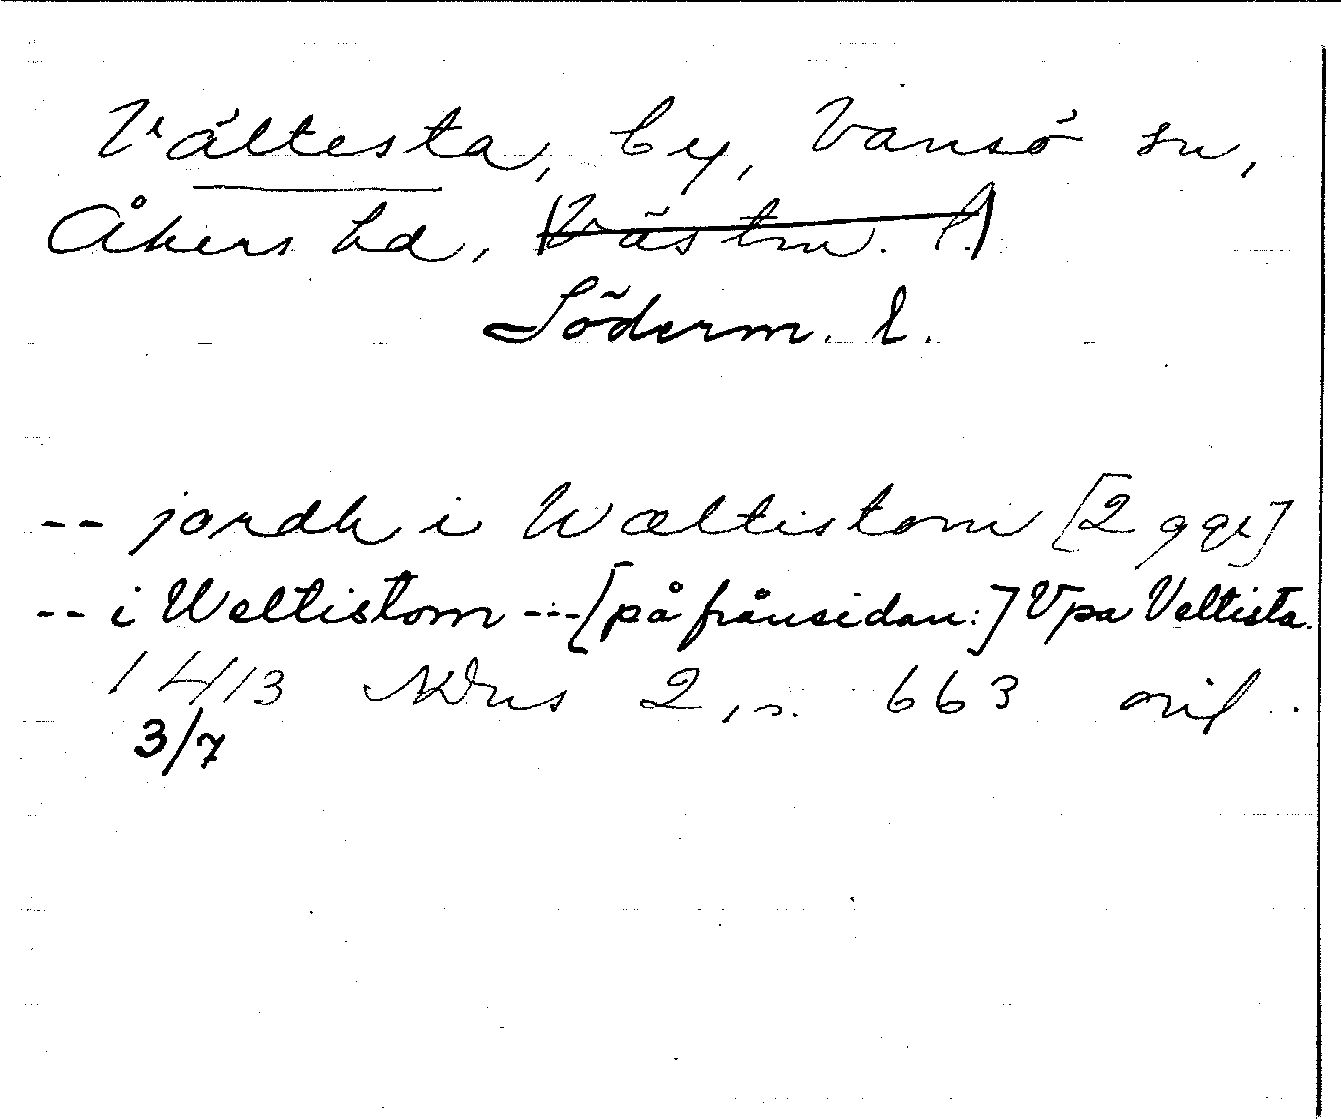 Vältesta, by, Vansö sn,
Åkers hd, (Västm. l.)
Söderm. l.
-- jordh i Wæltistom [2 ggr]
-- i Weltistom --- [på frånsidan:] Vpa Veltista.
1413 NDns 2, s. 663 oril.
3/7